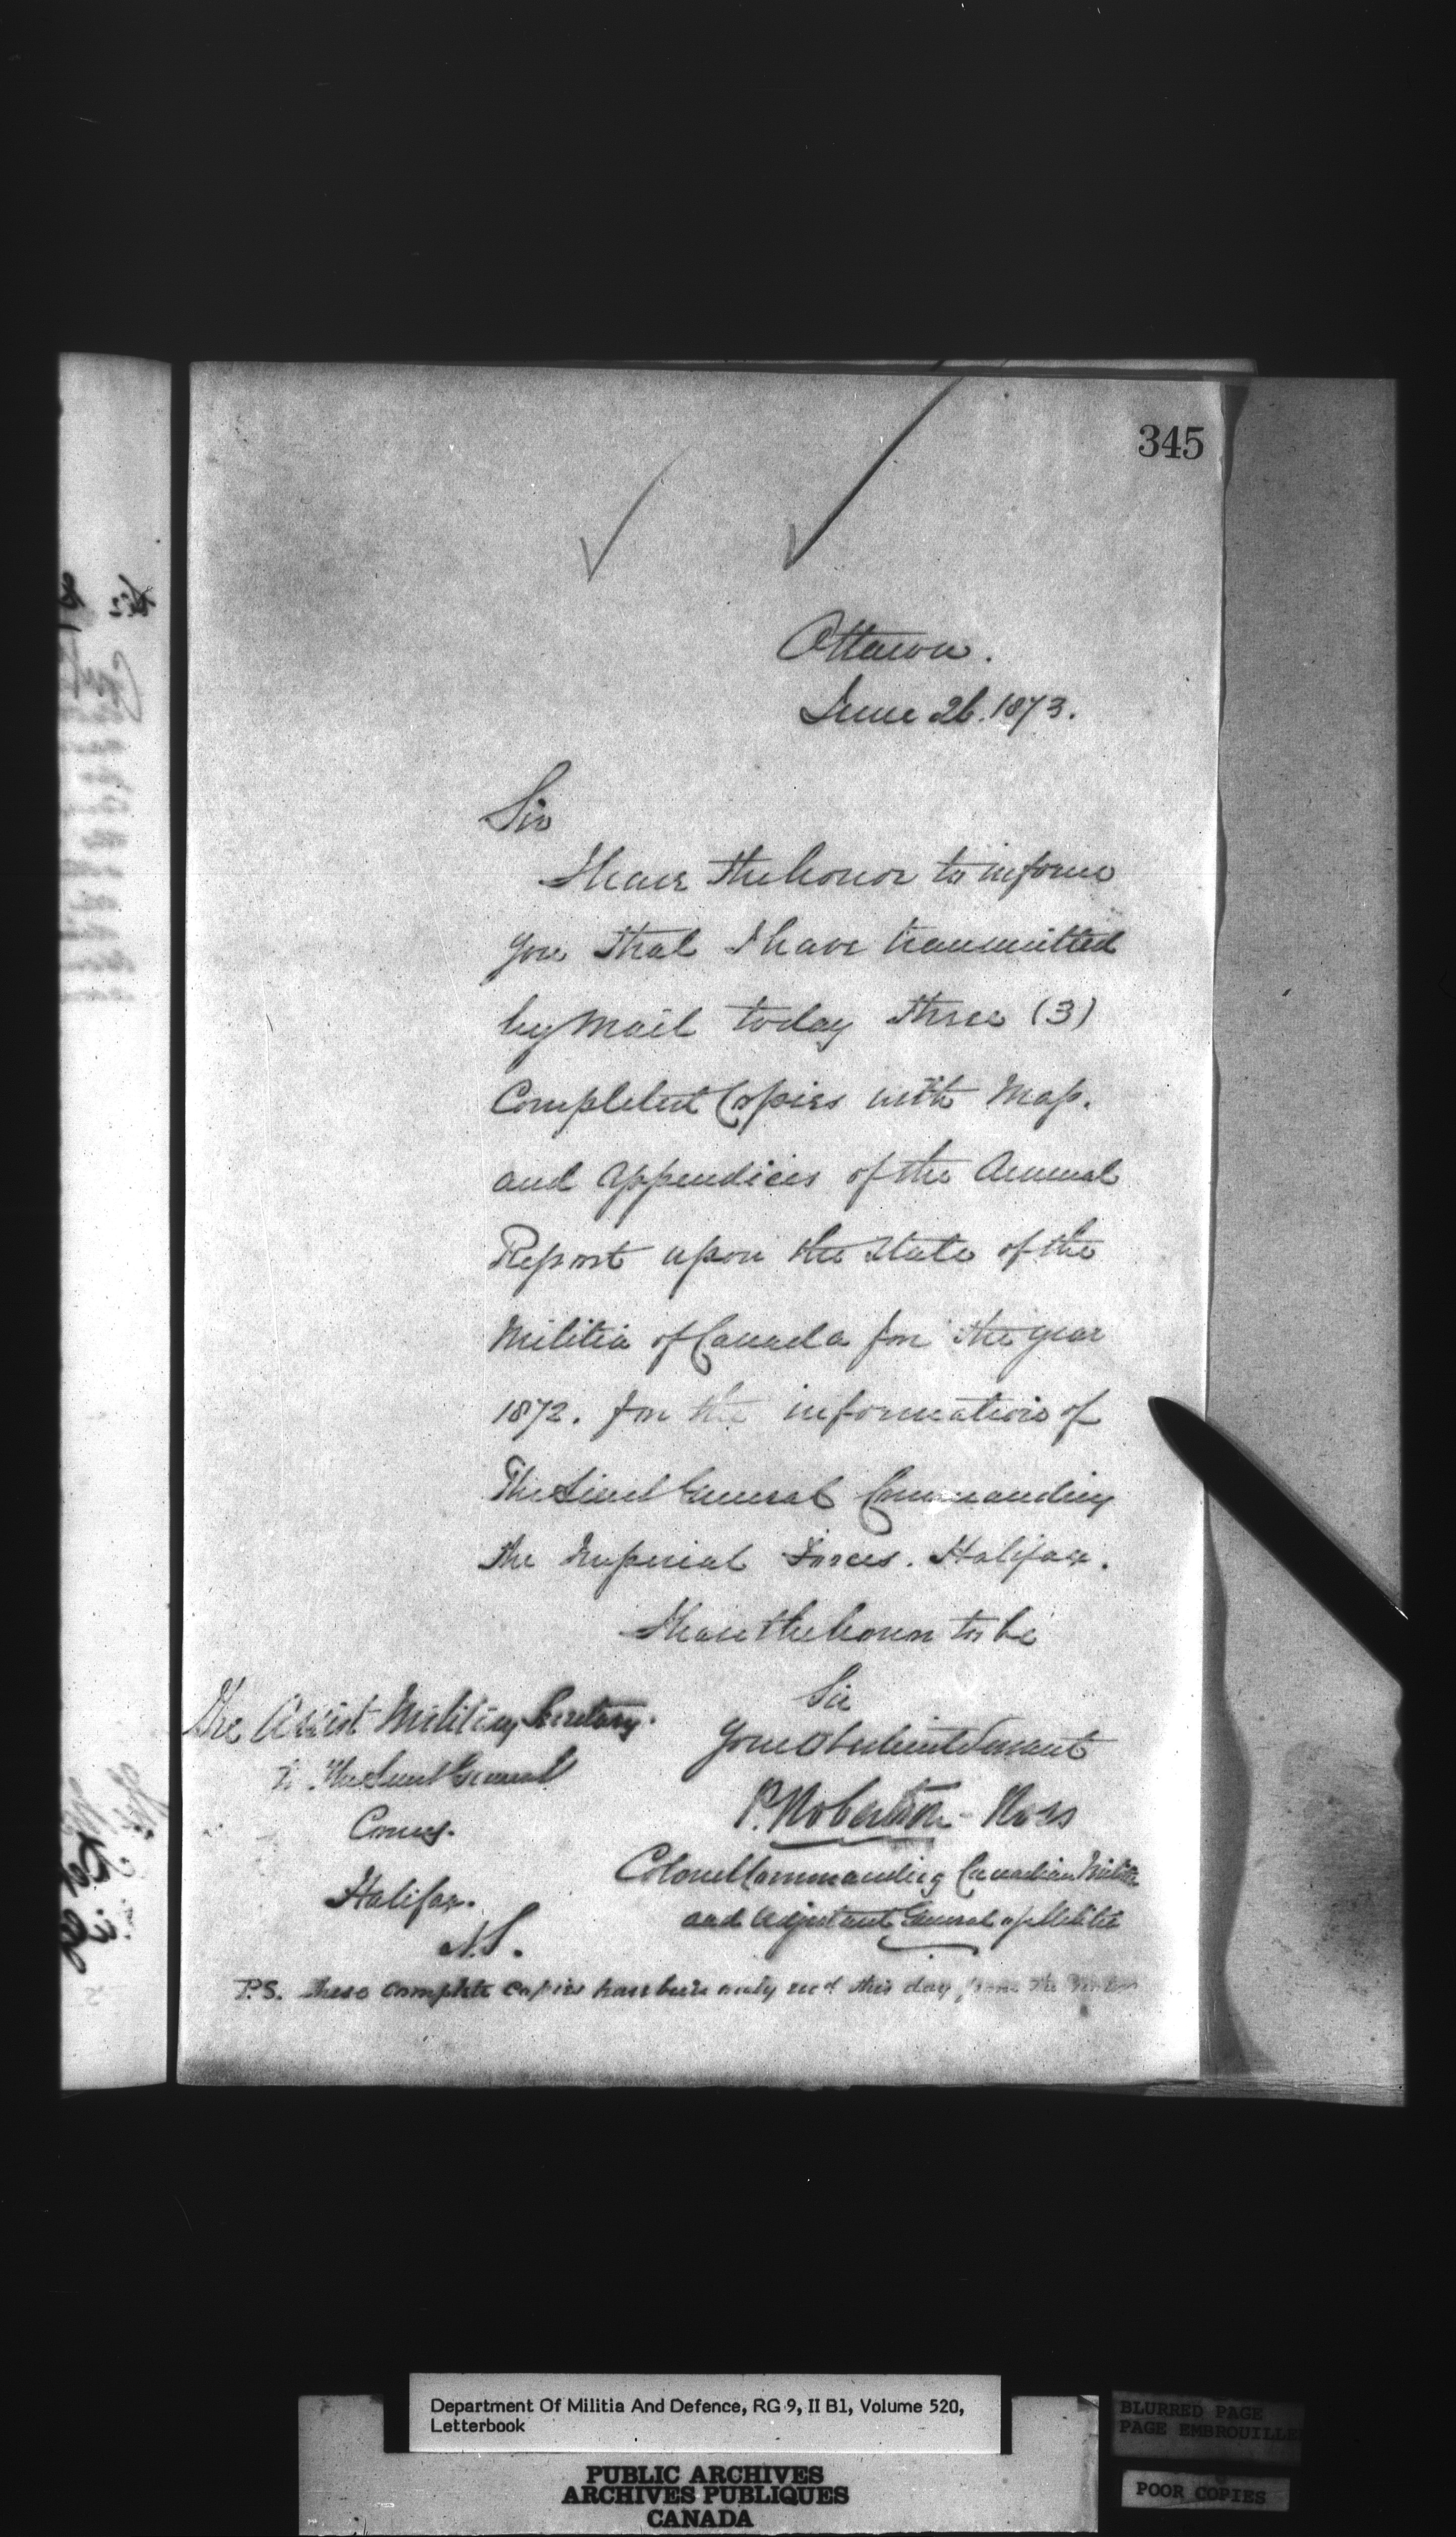 345
Ottawa.
June 26. 1873.
Sir
I have the honor to inform
you that I have transmitted
by Mail today three (3)
Completed Copies with Map.
and Appendices of the Annual
Report upon the State of the
Militia of Canada for the year
1872. for the information of
The Lieut General Commanding
the Imperial Forces. Halifax.
I have the honor to be
Sir
Your Obedient Servant
P. Robertson-Ross
Colonel Commanding Canadian Militia
and Adjutant General of Militia
The Assist Military Secretary.
To The Lieut General
Comg.
Halifax.
N.S.
P.S. These complete copies have been only recd this day from the
Department Of Militia And Defence, RG 9, II B1, Volume 520,
Letterbook
PUBLIC ARCHIVES
ARCHIVES PUBLIQUES
CANADA
BLURRED PAGE
PAGE EMBROUILLE
POOR COPIES